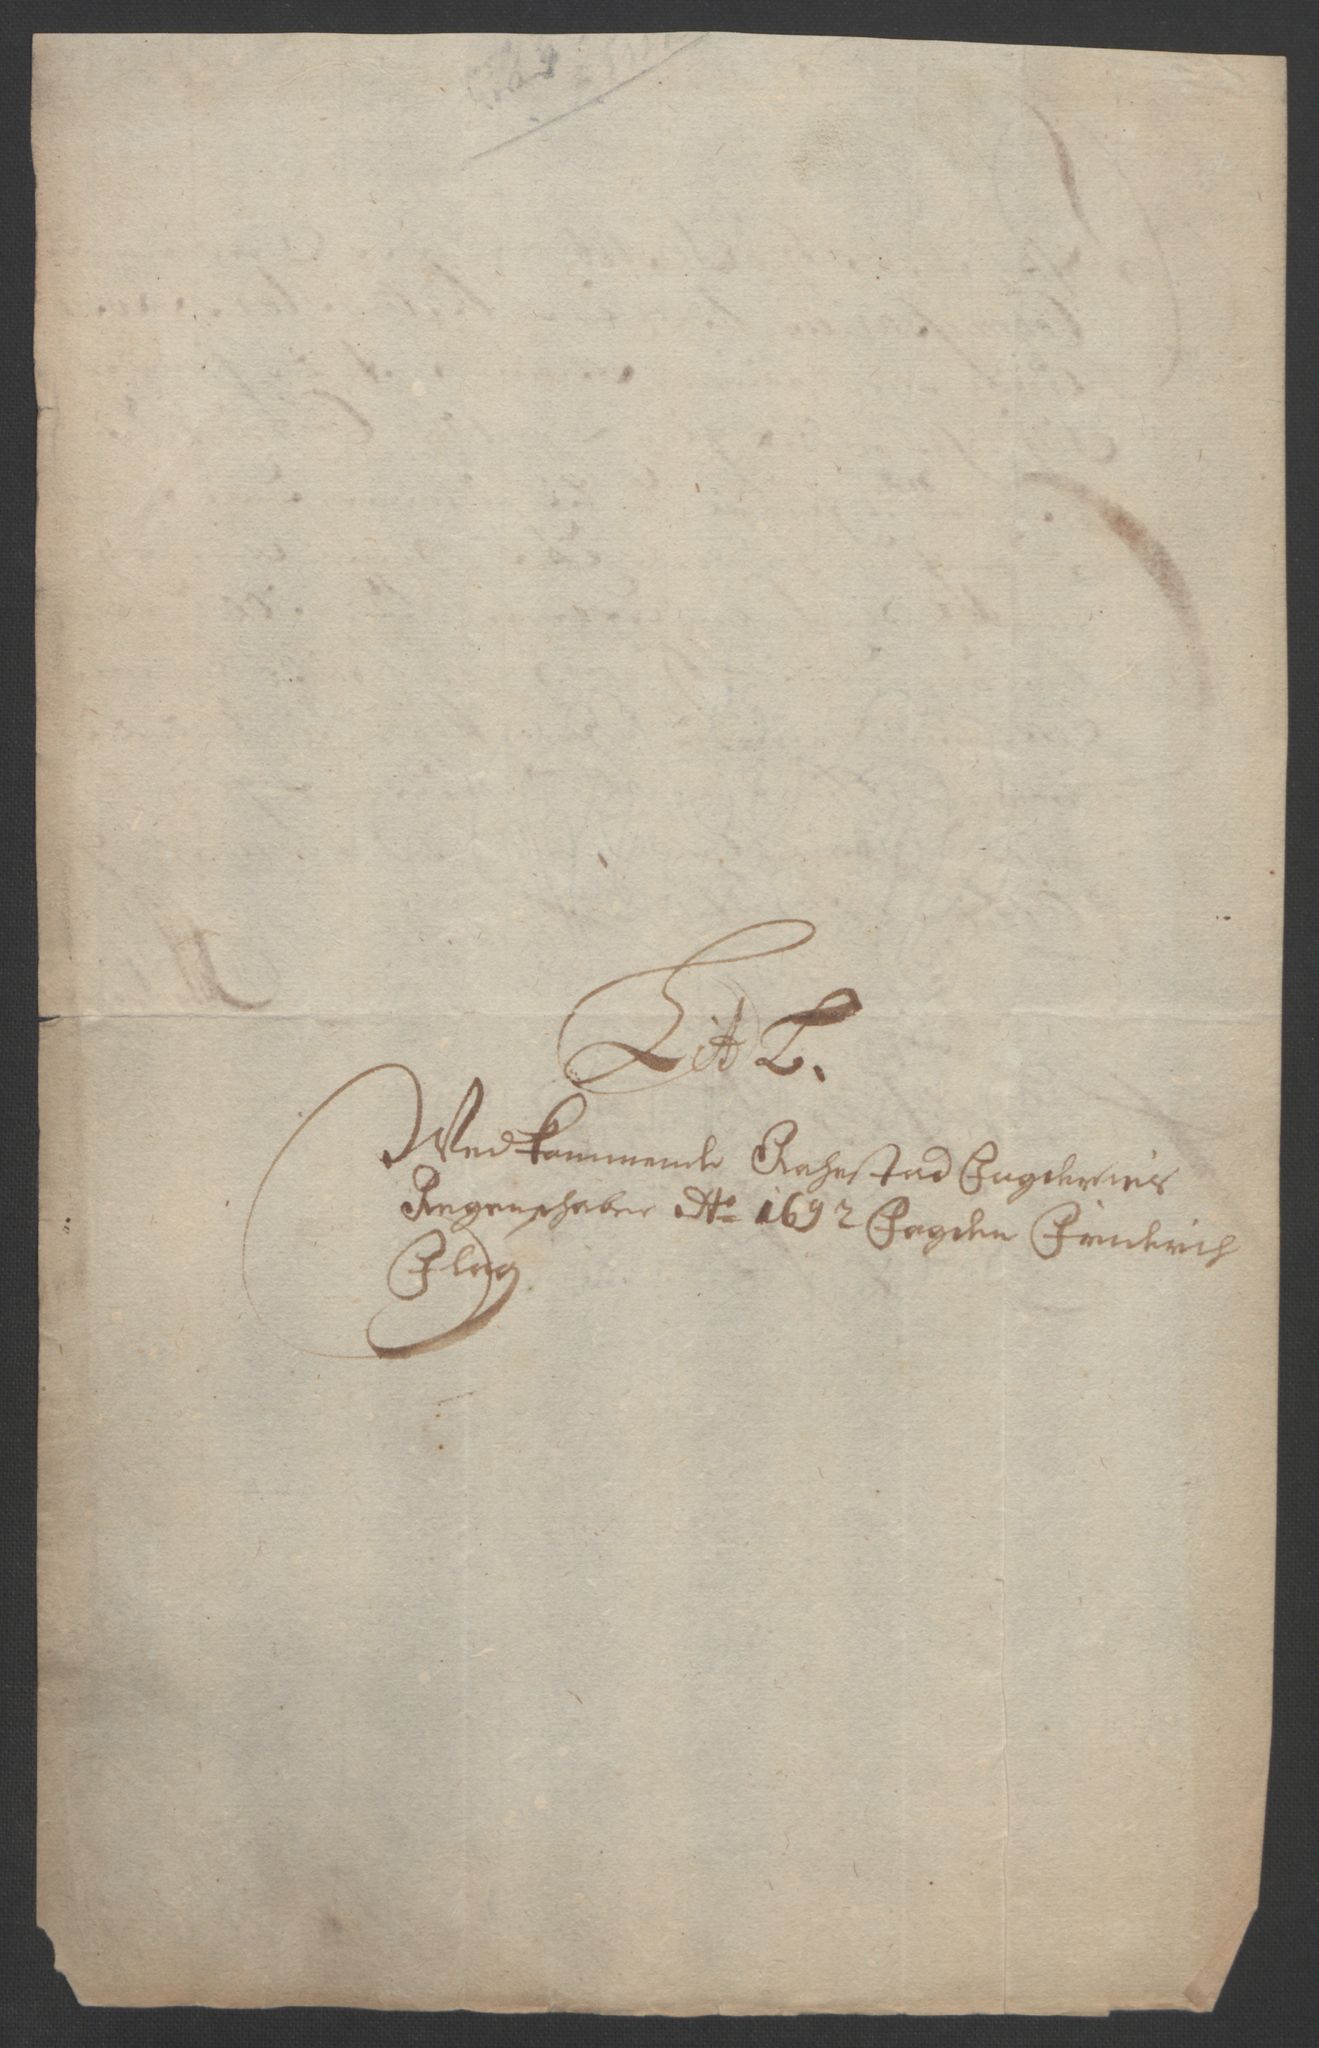 Lit L.
Vedkommende Rachestad Fogderies
Regenschaber Ao 1692 Fogden Friderich
Plog